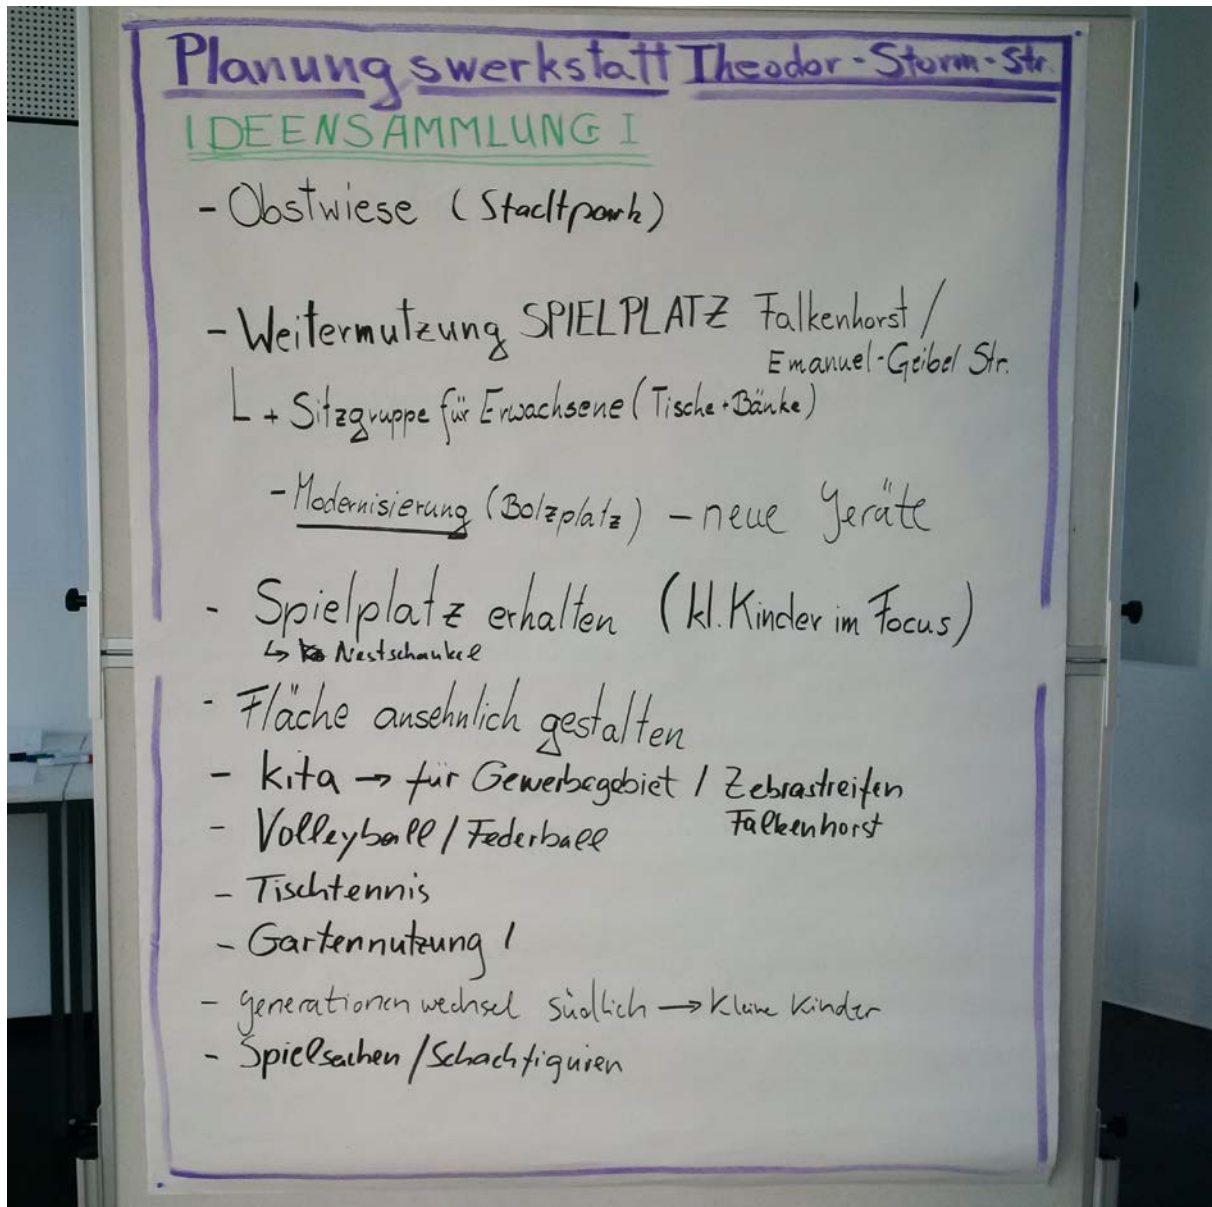 Planungswerkstatt Theodor-Storm-Str.
IDEENSAMMLUNG I
- Obstwiese (Stadtpark)
- Weiternutzung SPIELPLATZ Falkenhorst /
Emanuel-Geibel Str.
L + Sitzgruppe für Erwachsene (Tische + Bänke)
- Modernisierung (Bolzplatz) - neue Geräte
- Spielplatz erhalten (kl. Kinder im Focus)
↳ Nestschaukel
- Fläche ansehnlich gestalten
- Kita → für Gewerbegebiet / Zebrastreifen
Falkenhorst
- Volleyball / Federball
- Tischtennis
- Gartennutzung /
- Generationenwechsel südlich → Kleine Kinder
- Spielsachen / Schachfiguren